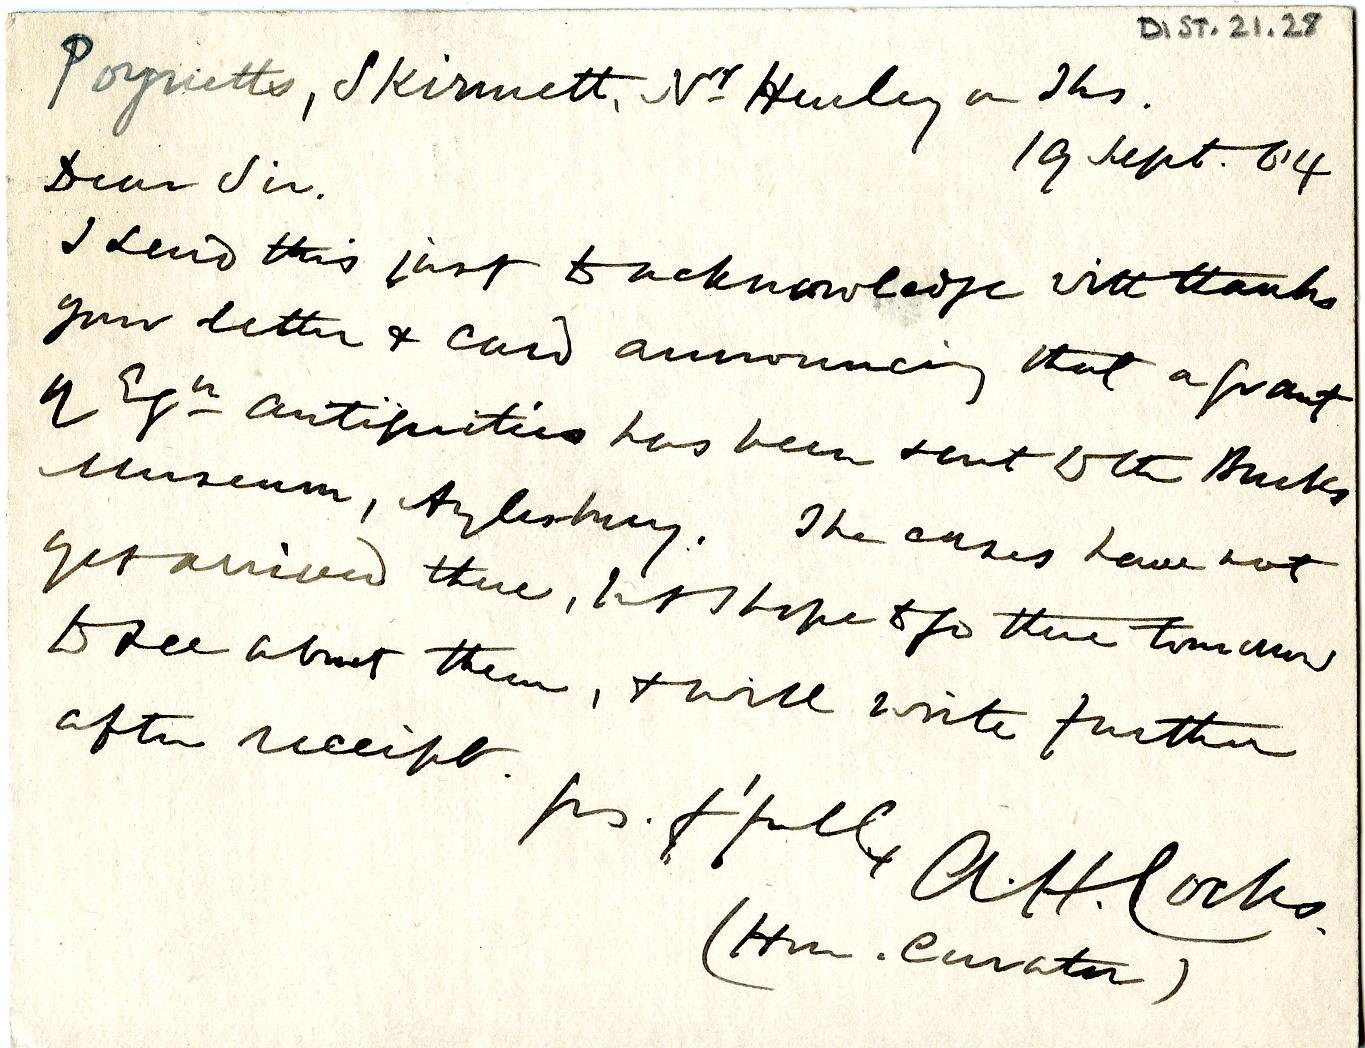 DIST. 21.28
Poynetts, Skirmett, Nr Henley on Ths.
19 Sept. 04
Dear Sir.
I send this just to acknowledge with thanks
your letter & card announcing that a grant
of Egn antiquities has been sent to the Bucks
Museum, Aylesbury. The cases have not
yet arrived there, but I hope to go there tomorrow
to see about them, & will write further
after receipt.
yrs. f'fully A.H. Cocks.
(Hon. Curator)